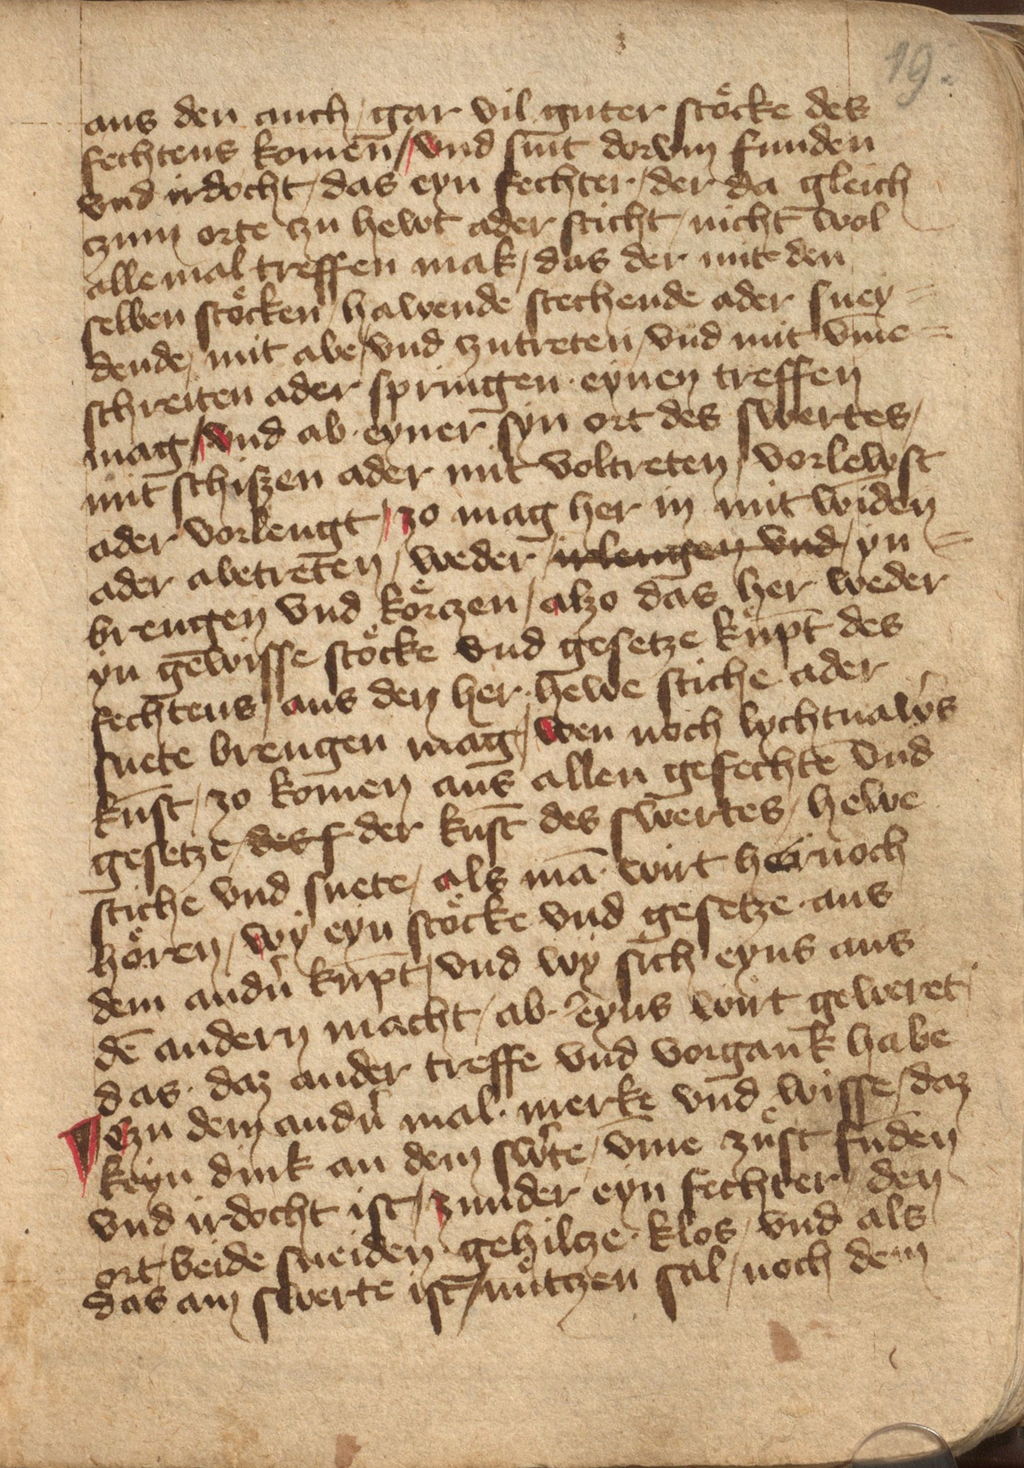 19.
aus den auch / gar vil guter stöcke des
fechtens komen / vnd sint dorvm funden
vnd irdocht / das eyn fechter / der da gleich
czum orte czu hewt ader sticht / nicht wol
allemal treffen mak / das der mit den
selben stöcken / hawende stechende ader sney=
dende / mit abe / vnd zutreten / vnd mit vme=
schreiten ader springen eynen treffen
mag / vnd ab eyner syn ort des swertes /
mit schiszen ader mit voltreten / vorlewst
ader vorlengt / zo mag her in mit widen
ader abetreten / weder irlengen vnd yn=
brengen vnd körczen / alzo das her weder
yn gewisse stöcke vnd gesetze kupt des
fechtens / aus den her hewe stiche ader
snete brengen mag / wen noch lychtnaw̓s
kunst / zo komen aus allen gefechtē vnd
gesetze / des f der kūst des swertes / hewe
stiche vnd snete / als mā wirt hernoch
hören / wÿ eyn stöcke vnd gesetze aus
dem andn̓ kupt / vnd wy sich eyns aus
dē andern macht / ab eyns wirt geweret
das daz ander treffe vnd vorgank habe
Czu dem andn̓ mal merke vnd wisse / daz
keyn dink an dem sw̓te / vme züst funden
vnd irdocht ist / zunder eyn fechter / den
ort / beide sneiden gehilcze klos / vnd als
das am swerte ist / nutczen sal / noch dem